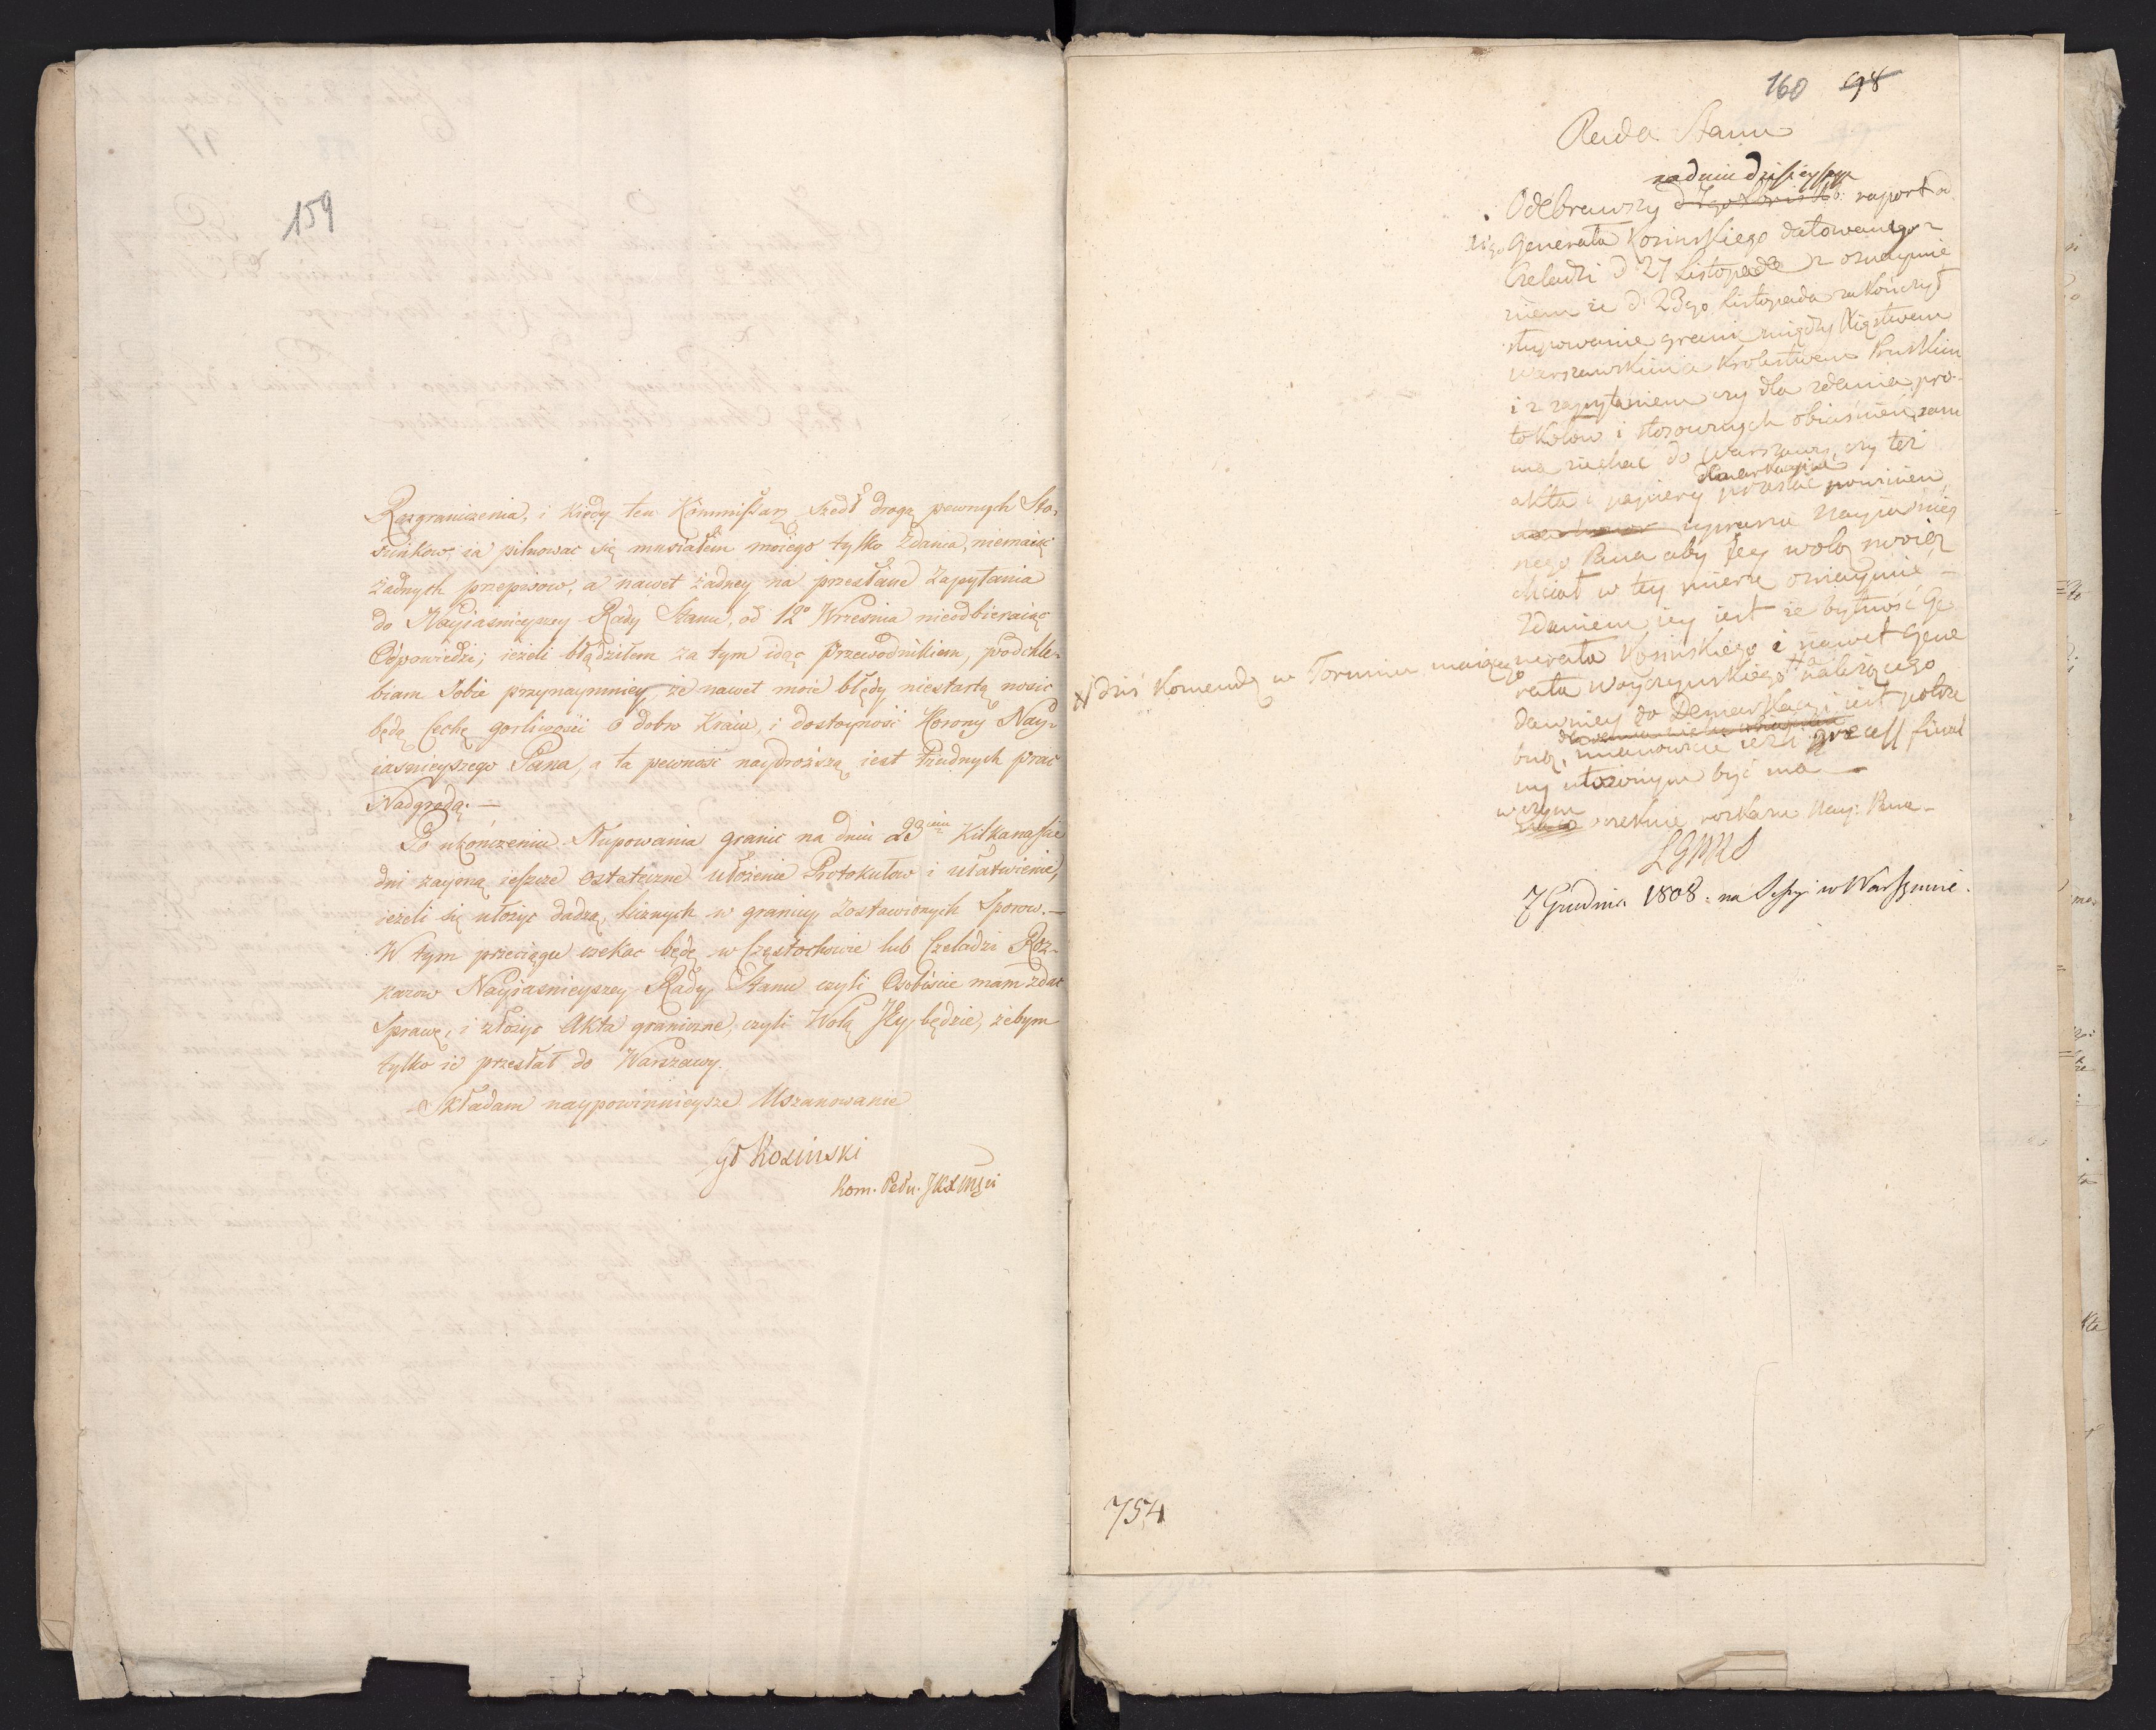 159
Rozgraniczenia, i kiedy ten Kommissarz szedł drogą pewnych Sto-
sunkow, ia pilnowac się musiałem moiego tylko Zdania, niemaiąc
żadnych przepisow, a nawet żadney na przesłane Zapytania
do Nayiasnieyszey Rady Stanu, od 12º Wrzesnia nieodbieraiąc
Odpowiedzi; ieżeli błądziłem za tym idąc Przewodnikiem, podchle-
biam Sobie przynaymniey, że nawet moie błędy niestartą nosic
będą Cechę gorliwości o dobro Kraiu, i dostoyność Korony Nay-
iasnieyszego Pana, a ta pewność naydroższą iest trudnych prac
Nadgrodą. —
Po ukończeniu Słupowania granic na dniu 23 Kilkanaście
dni zaymą ieszcze Ostateczne Ułożenie Protokułow i ułatwienie,
ieżeli się ułożyc dadzą, licznych w granicy Zostawionych Sporow. —
W tym przeciągu czekac będę w Częstochowie lub Czeladzi Roz-
kazow Nayiasnieyszey Rady Stanu czyli Osobiscie mam zdac
Sprawę, i złożyc Akta graniczne, czyli Wolą Jey będzie, żebym
tylko ie przesłał do Warszawy.
Składam naypowinnieysze Uszanowanie
Kosiński
Kom. Pełn.
160 98
Rada Stanu
na dniu dzisieyszym
Odebrawszy raport od
Generała Kosinskiego datowanego z
Czeladzi d 27 Listopada z oznaymie
niem że d 23go Listopada zakończył
słupowanie granic między Xięstwem
Warszawskim a Krolestwem Pruskim
i z zapytaniem czy dla zdania pro-
tokołow i stosownych obiasnień sam
ma ziechać do Warszawy, czy też
demarkacyine
akta i papiery przesłać powinien,
uprasza Nayiaśniey
szego Pana aby Jey wolę swoię
chciał w tey mierze oznaymić —
Zdaniem iey iest że bytność Ge
nerała Kosińskiego i nawet Gene
# dziś Komendę w Toruniu maiącego
rała Woyczyńskiego # należącego
dawniey do Demarkacyi iest potrze
bną, mianowicie ieżli process final
ny ułożonym być ma —
w czym
oczekuie rozkazu Nay: Pana —
7 Grudnia 1808. na Sessyi w Warszawie.
754